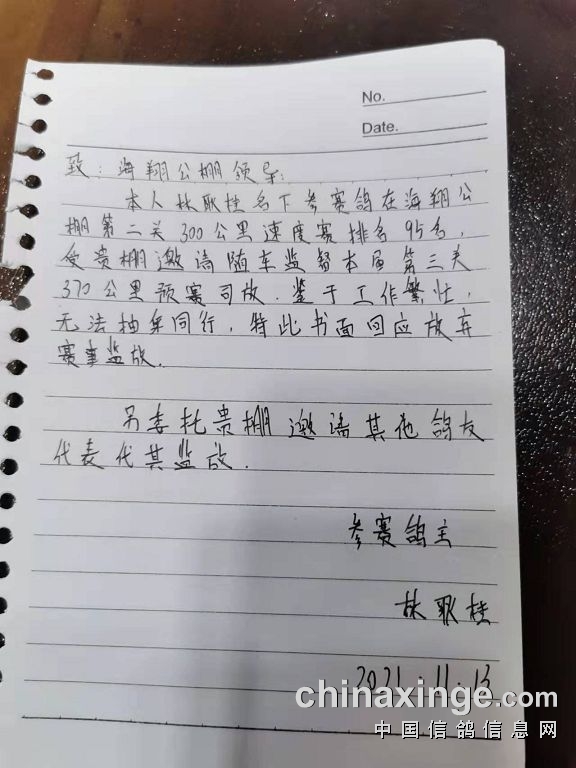 No.
Date.
致：海翔公棚领导：
本人林耿桂名下参赛鸽在海翔公
棚第二关300公里速度赛排名95名,
受贵棚邀请随车监督本届第三关
370公里预赛司放.鉴于工作繁忙,
无法抽身同行,特此书面回应放弃
赛事监放.
另委托贵棚邀请其他鸽友
代表代其监放.
参赛鸽主
林耿桂
2021.11.13
chinaxinge.com
中国信鸽信息网